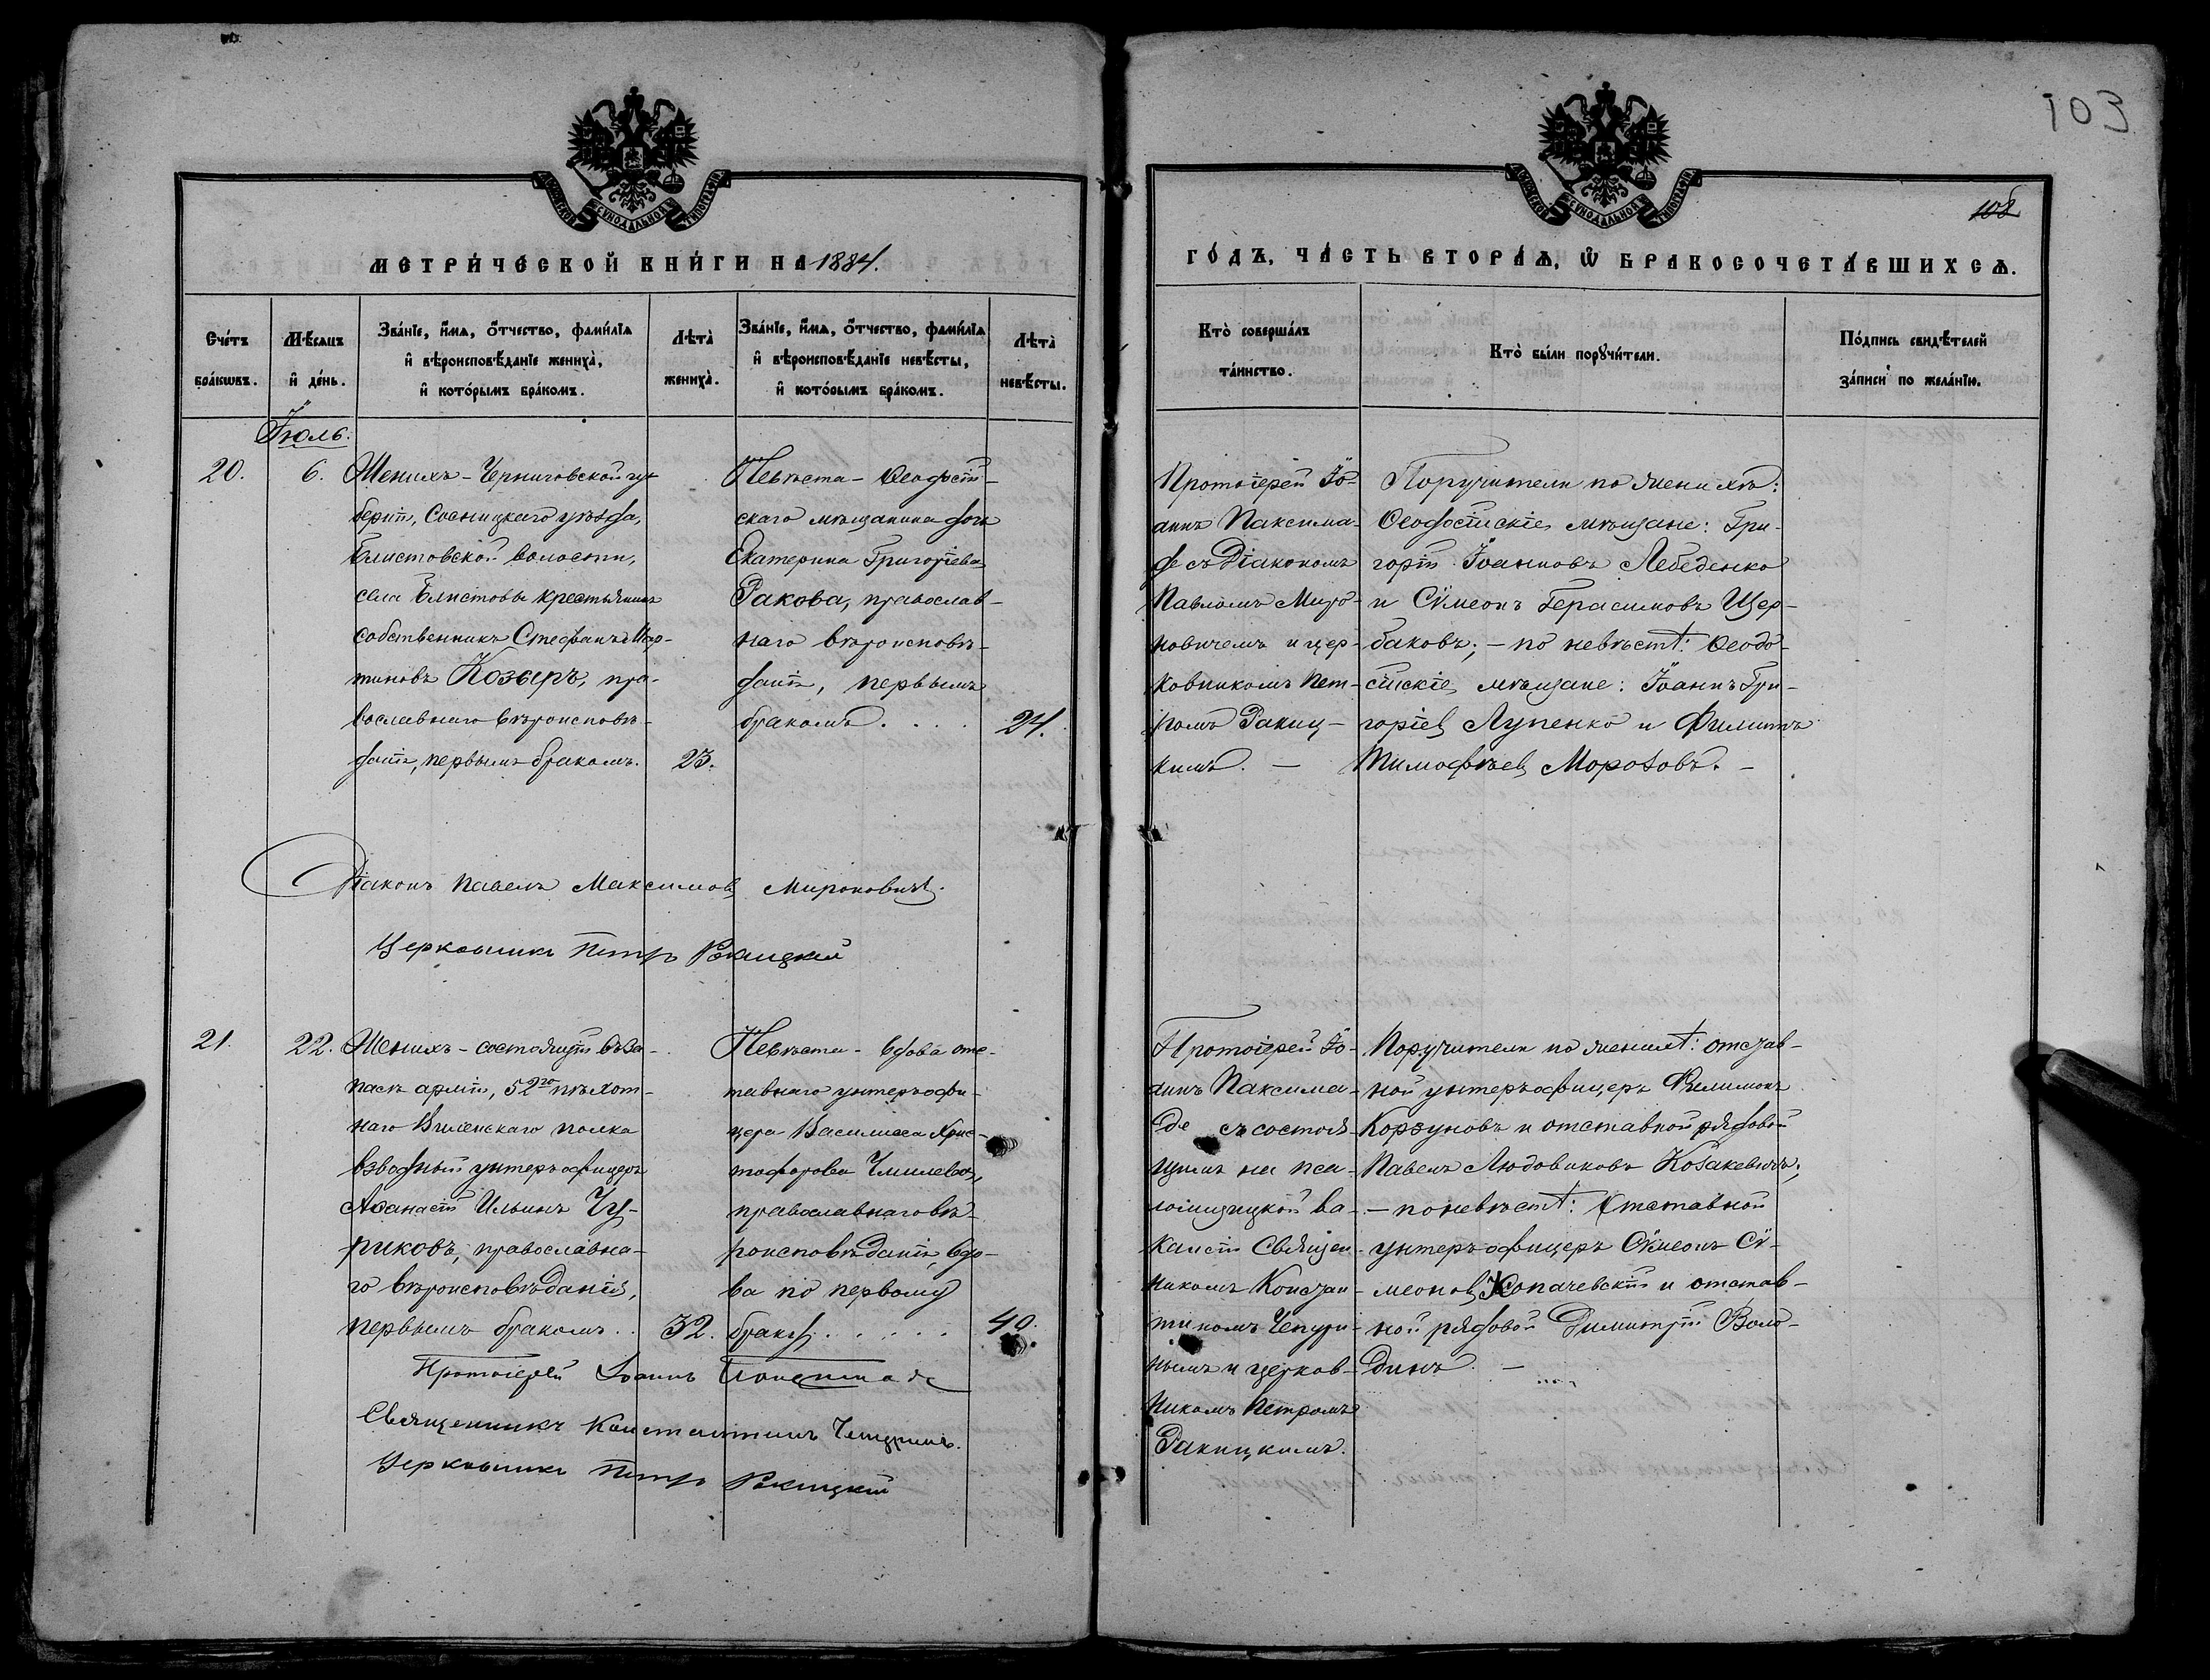 103
102
МОСКОВСКОЙ СѴНОДАЛЬНОЙ ТИПОГРАФІИ
МОСКОВСКОЙ СѴНОДАЛЬНОЙ ТИПОГРАФІИ
МЕТРИ́ЧЕСКОЙ КНИ́ГИ НА 1884.
ГО́ДЪ, ЧА́СТЬ ВТОРА́Ѧ, Ѡ҆ БРАКОСОЧЕТА́ВШИХСѦ.
Сче́тъ бра́кѡвъ.
Мѣ́сѧцъ и҆ де́нь.
Зва́нїе, и҆́мѧ, ѻ҆́тчество, фами́лїѧ и҆ вѣроисповѣ́данїе жениха̀, и҆ кото́рымъ бра́комъ.
Лѣта̀ жениха̀.
Зва́нїе, и҆́мѧ, ѻ҆́тчество, фами́лїѧ и҆ вѣроисповѣ́данїе невѣ́сты, и҆ кото́рымъ бра́комъ.
Лѣта̀ невѣ́сты.
Кто̀ соверша́лъ та́инство.
Кто̀ бы́ли порꙋчи́тели.
По́дпись свидѣ́телей за́писи по жела́нїю.
Іюль.
20.
6.
Женихъ - Черниговской гу-
берніи, Сосницкаго уѣзда,
Блистовской волости,
села Блистовы крестьянинъ
собственникъ Стефанъ Мар-
тиновъ Козыръ, пра-
вославнаго вѣроисповѣ-
данія, первымъ бракомъ.
23.
Невѣста - Ѳеодосій-
скаго мѣщанина дочь
Екатерина Григоріева
Ракова, православ-
наго вѣроисповѣ-
данія, первымъ
бракомъ. . . .
21.
Протоіерей Іо-
аннъ Паксима-
де съ Діакономъ
Павломъ Миро-
новичемъ и цер-
ковникомъ Пет-
ромъ Ракиц-
кимъ. -
Поручители по женихѣ:
Ѳеодосійскіе мѣщане: Гри-
горій Іоанновъ Лебеденко
и Сѵмеонъ Герасимовъ Щер-
баковъ; - по невѣстѣ: Ѳеодо-
сійскіе мѣщане: Іоаннъ Гри-
горіевъ Лупенко и Филиппъ
Тимофѣевъ Морозовъ. -
Діаконъ Павелъ Максимовъ Мироновичъ.
Церковникъ Петръ Ракицкій
21.
22.
Женихъ - состоящій въ за-
пасѣ арміи, 52го пѣхот-
наго Виленскаго полка
взводный унтеръ офицеръ
Аѳанасій Ильинъ Чу-
риковъ, православна-
го вѣроисповѣданія,
первымъ бракомъ. .
32.
Невѣста - вдова отс-
тавнаго унтеръ офи-
цера Василиса Хрис-
тофорова Чмилева,
православнаго вѣ-
роисповѣданія, вдо-
ва по первому
браку. . . . . .
40.
Протоіерей Іо-
аннъ Паксима-
де съ состоя-
щимъ на пса-
ломщицкой ва-
кансіи Священ-
никомъ Констан-
тиномъ Чепури-
нымъ и церков-
никомъ Петромъ
Ракицкимъ.
Поручители по женихѣ: отстав-
ной унтеръ офицеръ Филимонъ
Корзуновъ и отставной рядовой
Павелъ Людовиковъ Козакевичъ;
- по невѣстѣ: Отставной
унтеръ офицеръ Сѵмеонъ Сѵ-
меоновъ Копачевскій и отстав-
ной рядовой Димитрій Воло-
динъ. -
Протоіерей Іоаннъ Паксимаде
Священникъ Константинъ Чепуринъ.
Церковникъ Петръ Ракицкій